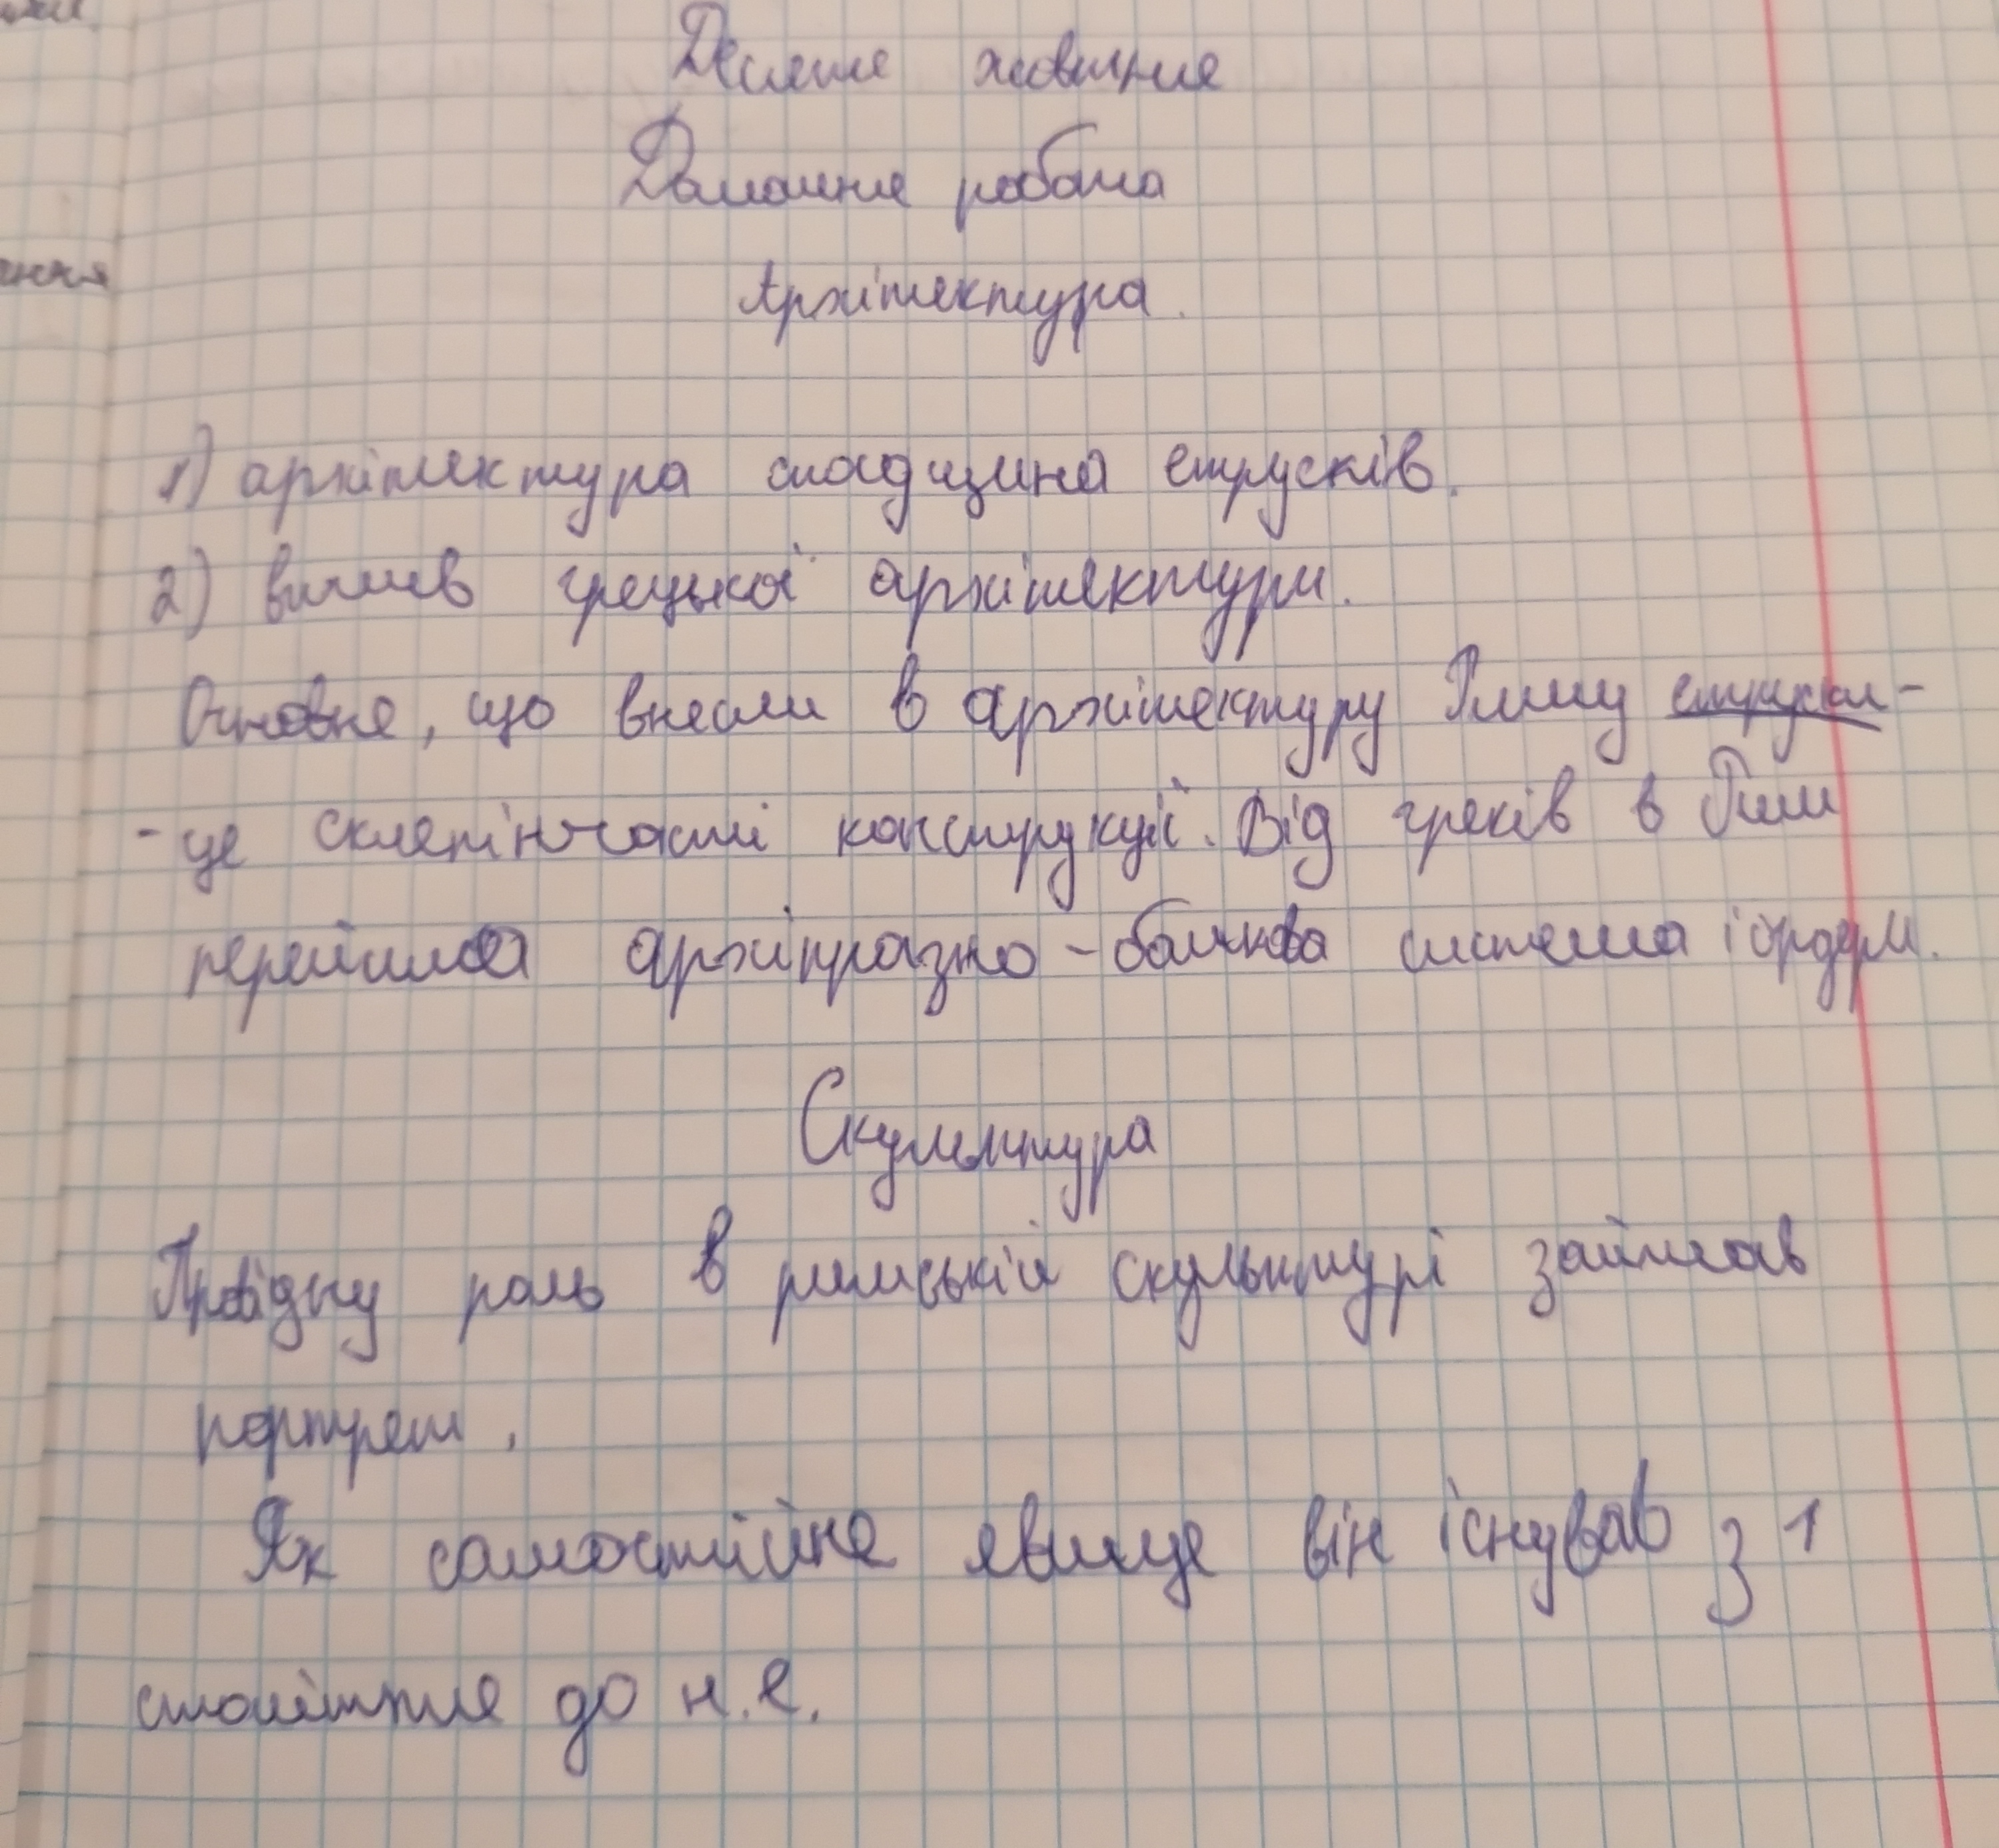 Десяте жовтня
Домашня робота
Архітектура.
1) архітектура спадщина етрусків.
2) вплив грецької архітектури.
Основне, що внесли в архітектуру Риму етруски-
- це склепінчасті конструкції. Від греків в Рим
перейшла архітравно-балкова система і ордери.
Скульптура
Провідну роль в римській скульптурі займав
портрет.
Як самостійне явище він існував з 1
століття до н.е.